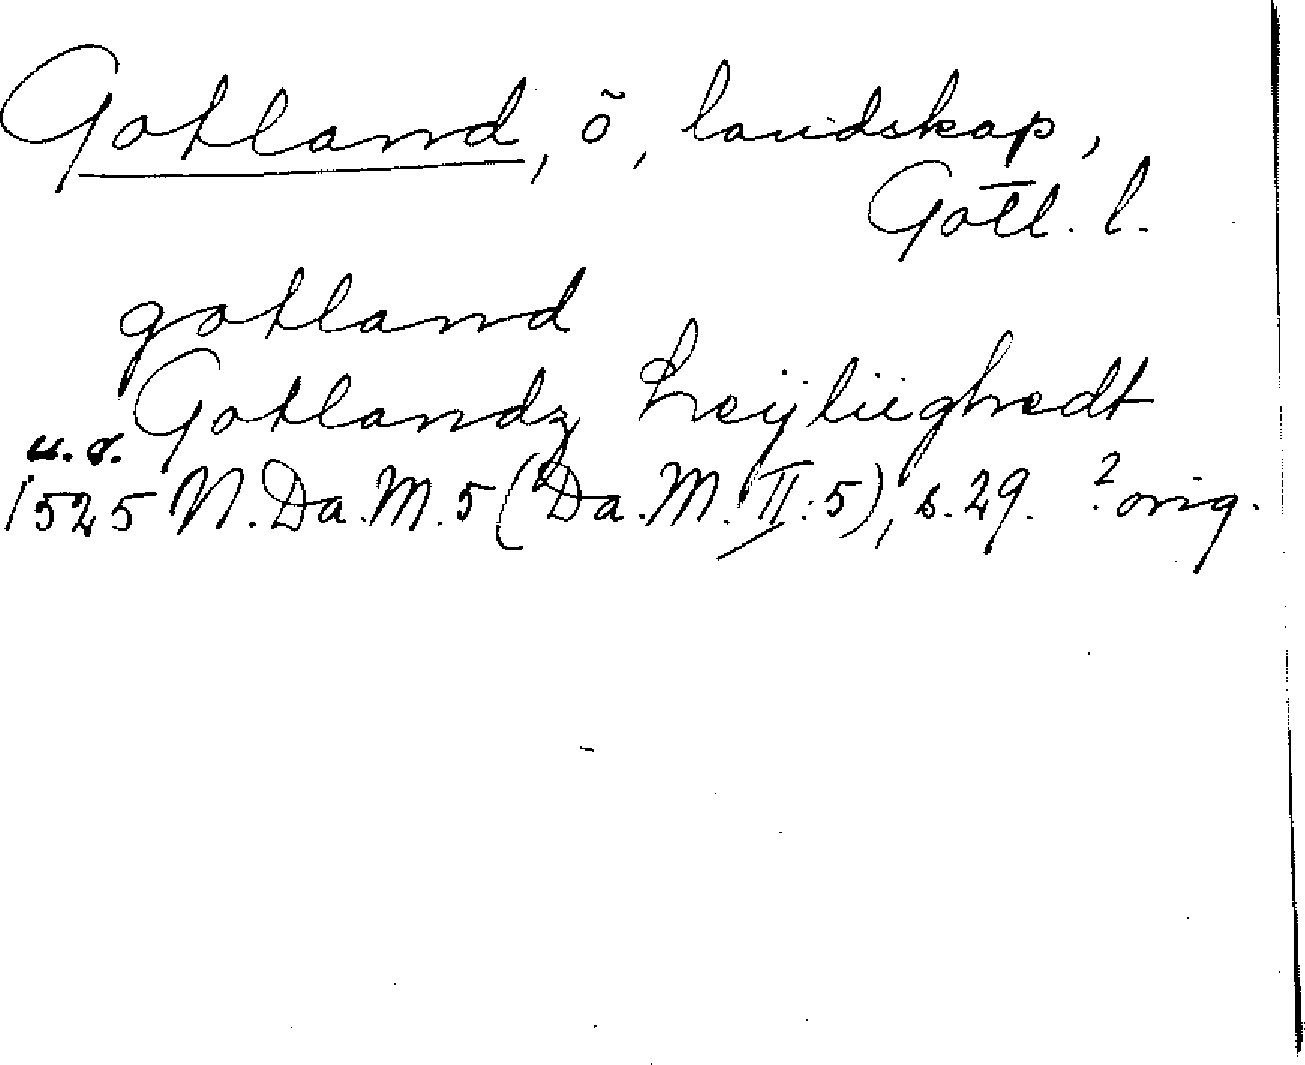 Gotland, ö, landskap,
Gotl. l.
gotland
Gotlandz heÿliighedt
u. å.
1525 N. Da. M. 5 (Da. M. II: 5), s. 29. ? orig.